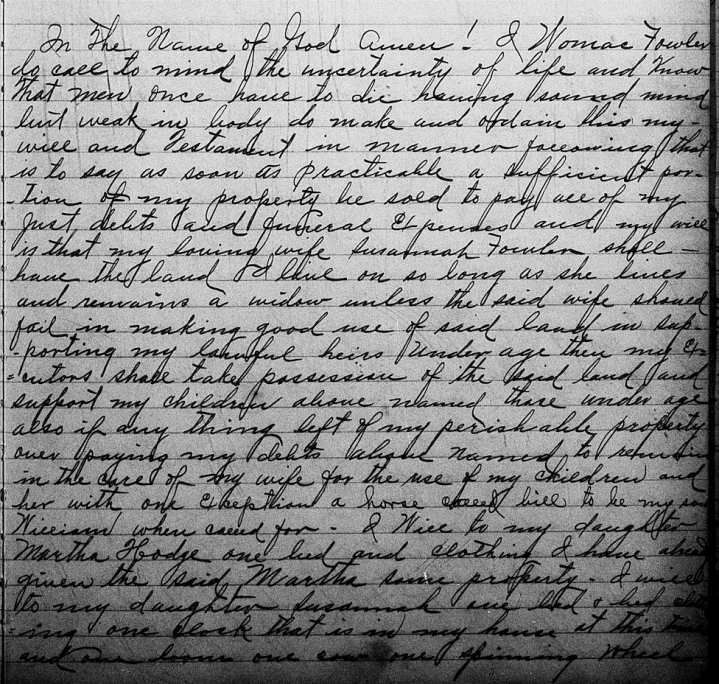 In The Name of God Amen! I Womac Fowler
do call to mind the uncertainty of life and Know
that men once have to die having sound mind
but weak in body do make and ordain this my
will and Testament in manner following that
is to say as soon as practicable a sufficient por-
-tion of my property be sold to pay all of my
just debts and funeral Expenses and my will
is that my loving wife Susannah Fowler shall -
have the land I live on so long as she lives
and remains a widow unless the said wife should
fail in making good use of said land in sup-
-porting my lawful heirs Under age then my Ex-
=cutors shall take possession of the said land and
support my children above named those under age
also if any thing left of my perishable property
over paying my debts above named to remain
in the care of my wife for the use of my children and
her with one Exception a horse called bill to be my son
William when called for - I Will to my daughter
Martha Hodge one bed and clothing I have already
given the said Martha some property - I will
to my daughter Susannah one bed & bed cloth
=ing one clock that is in my house at this time
and one loom one cow one spinning wheel